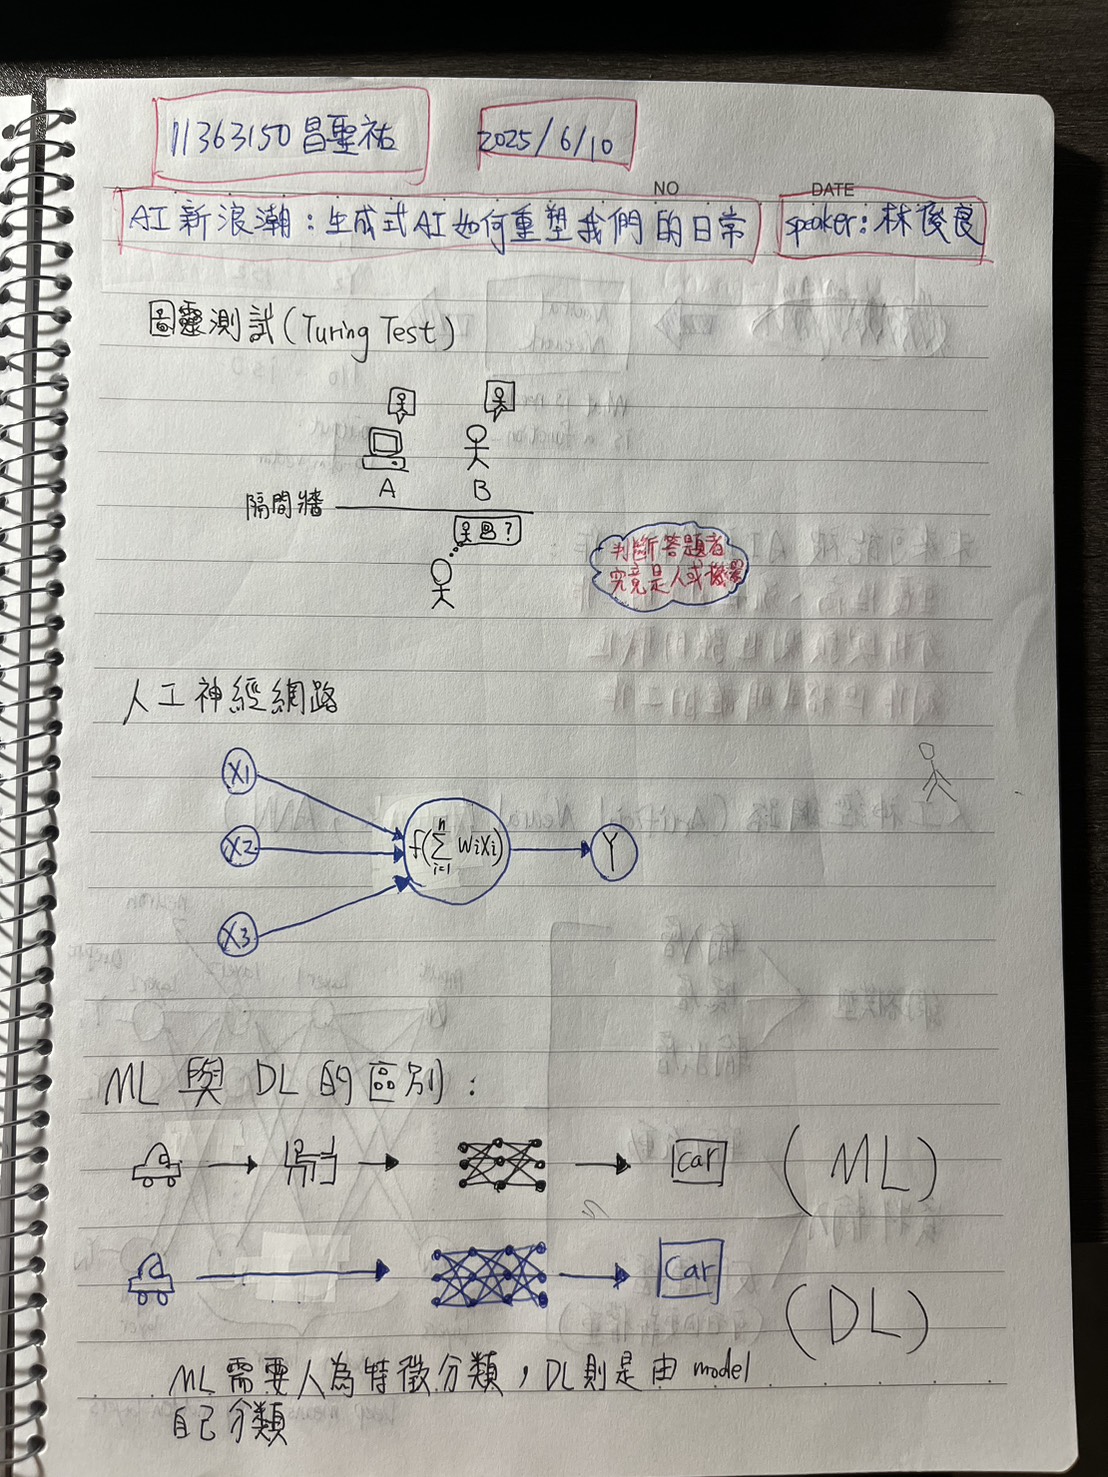 11363150 昌聖祐
2025/6/10
NO
DATE
AI 新浪潮：生成式AI如何重塑我們的日常
speaker: 林俊良
圖靈測試(Turing Test)
A
B
隔間牆
?
判斷答題者
究竟是人或機器
人工神經網路
X1
X2
X3
f(∑ᵢ₌₁ⁿ WiXi)
Y
ML 與 DL 的區別：
Car
(ML)
Car
(DL)
ML需要人為特徵分類，DL則是由 model
自己分類